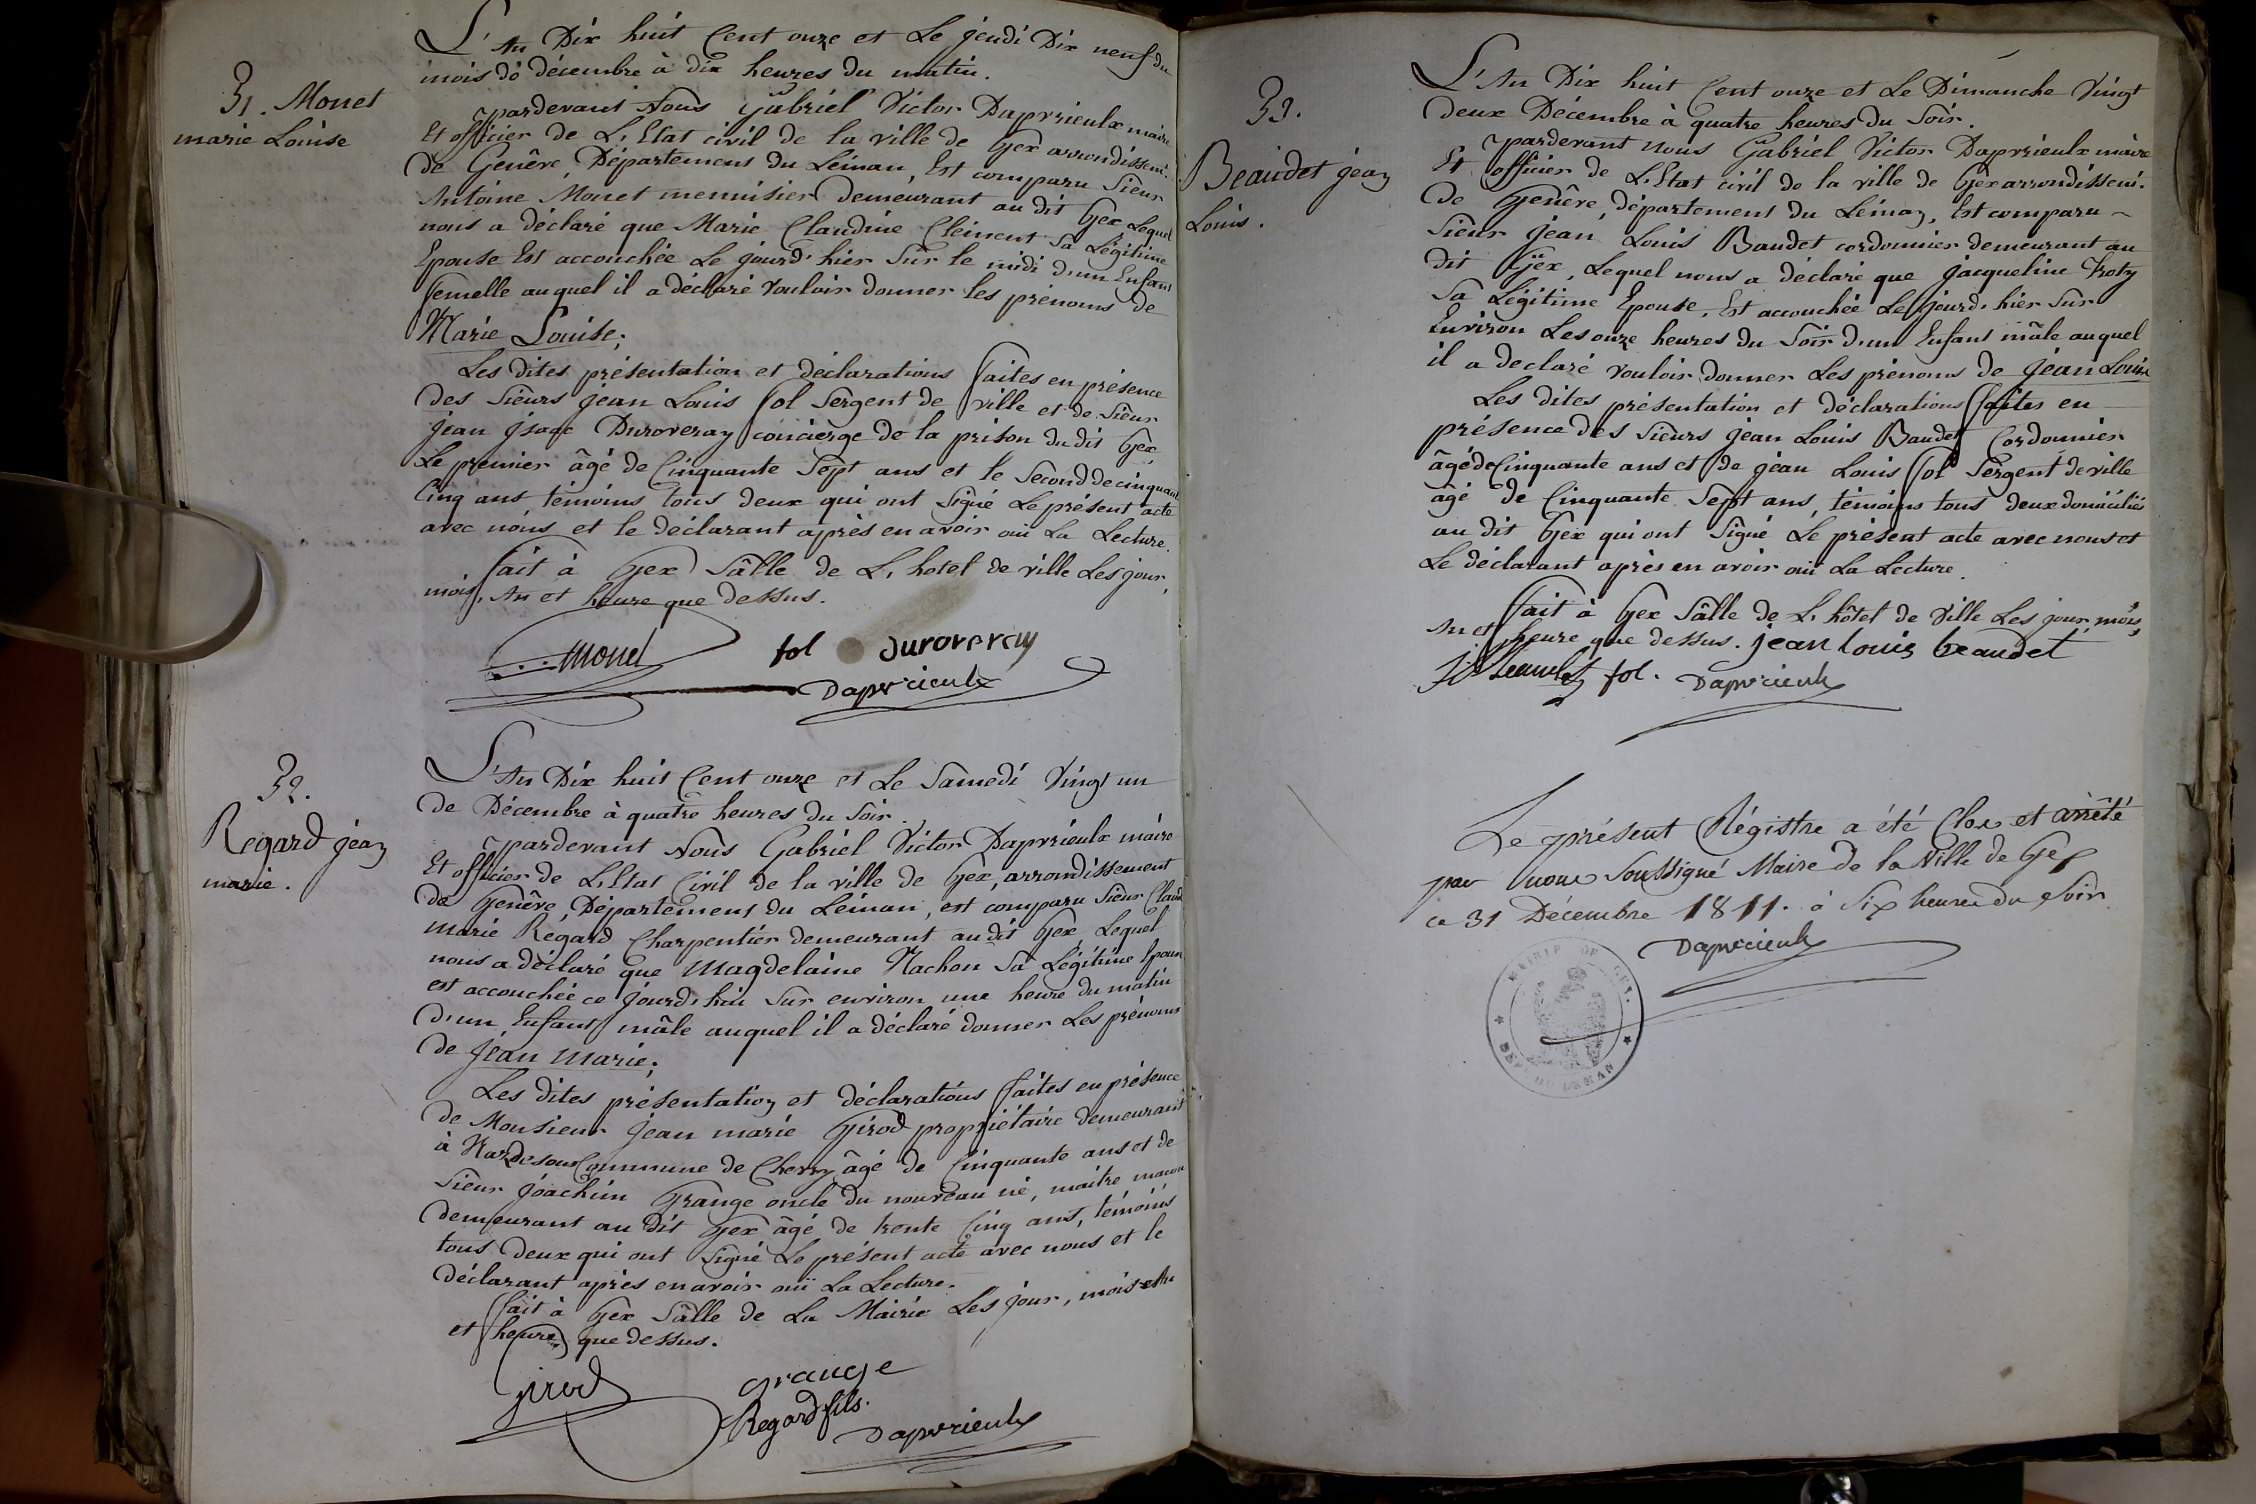 31. Monet
marie Louise
L'An Dix huit Cent onze et Le jeudi Dix neuf du
mois de décembre à dix heures du matin.
pardevant Nous Gabriel Victor Dapvrieulx maire
Et officier de L'Etat civil de la ville de Gex arrondissem.t
De Genêve, Département du Léman, Est comparu Sieur
Antoine Monet menuisier demeurant au dit Gex Lequel
nous a déclaré que Marie Claudine Clément Sa Légitime
Epouse Est accouchée Le jourd'hier Sur le midi d'un Enfant
femelle auquel il a déclaré vouloir donner les prénoms de
Marie Louise;
Les dites présentation et déclarations faites en présence
Des Sieurs jean Louis fol Sergent de ville et de Sieur
jean jsaac Duroveray concierge de la prison du dit Gex
Le premier âgé de Cinquante Sept ans et le Second de cinquante
Cinq ans, témoins tous deux qui ont Signé Le présent acte
avec nous et le déclarant après en avoir oui La Lecture.
fait à Gex Sâlle de L'hotel de ville Les jour,
mois, An et heure que dessus.
Monet fol Duroveray
Dapvrieulx
32.
Regard jean
marie.
L'An Dix huit Cent onze et Le Samedi Vingt un
de Décembre à quatre heures du Soir.
pardevant Nous Gabriel Victor Dapvrieulx maire
Et officier de L'Etat Civil de la ville de Gex, arrondissement
De Genêve, Département Du Léman, est comparu Sieur Claude
Marie Regard Charpentier demeurant au dit Gex, Lequel
nous a déclaré que Magdelaine Nachon Sa Légitime Epouse
est accouchée ce jourd'hui Sur environ une heure du matin
D'un Enfant mâle auquel il a déclaré donner Les prénoms
De jean Marie;
Les dites présentation et déclarations faites en présence
de Monsieur jean marie Girod propriétaire demeurant
à Commune de âgé de Cinquante ans et de
Sieur joachim Grange oncle du nouveau né, maitre macon
demeurant au dit Gex âgé de trente Cinq ans, témoins
tous deux qui ont Signé Le présent acte avec nous et le
déclarant après en avoir oui La Lecture.
fait à Gex Sâlle de La Mairie Les jour, mois An
et heure que dessus.
Girod Grange
Regard fils.
Dapvrieulx
33.
Beaudet jean
Louis.
L'An Dix huit Cent onze et Le Dimanche Vingt
deux Décembre à quatre heures du Soir.
pardevant nous Gabriel Victor Dapvrieulx maire
Et officier de L'Etat civil de la ville de Gex arrondissem.t
De Genêve, département du Léman, Est comparu
Sieur jean Louis Baudet cordonnier demeurant au
dit Gex, Lequel nous a déclaré que jacqueline
Sa Légitime Epouse, Est accouchée Le jourd'hier Sur
Environ Les onze heures du Soir d'un Enfant mâle auquel
il a declaré vouloir donner Les prénoms de jean Louis
Les dites présentation et déclarations faites en
présence des Sieurs jean Louis Baudet Cordonnier
âgé de Cinquante ans et de jean Louis fol Sergent de ville
âgé de Cinquante Sept ans, témoins tous deux domiciliés
au dit Gex qui ont Signé Le présent acte avec nous et
Le déclarant après en avoir oui La Lecture.
fait à Gex Sâlle de L'hôtel de Ville Les jour, mois,
An et heure que dessus. jean louis beaudet
fol. Dapvrieulx
Le présent Régistre a été Clos et arrêté
par nous Soussigné Maire de la Ville de Gex
ce 31 Décembre 1811. à Six heures du Soir
Dapvrieulx
MAIRIE DE GEX.
DEP. DU LEMAN